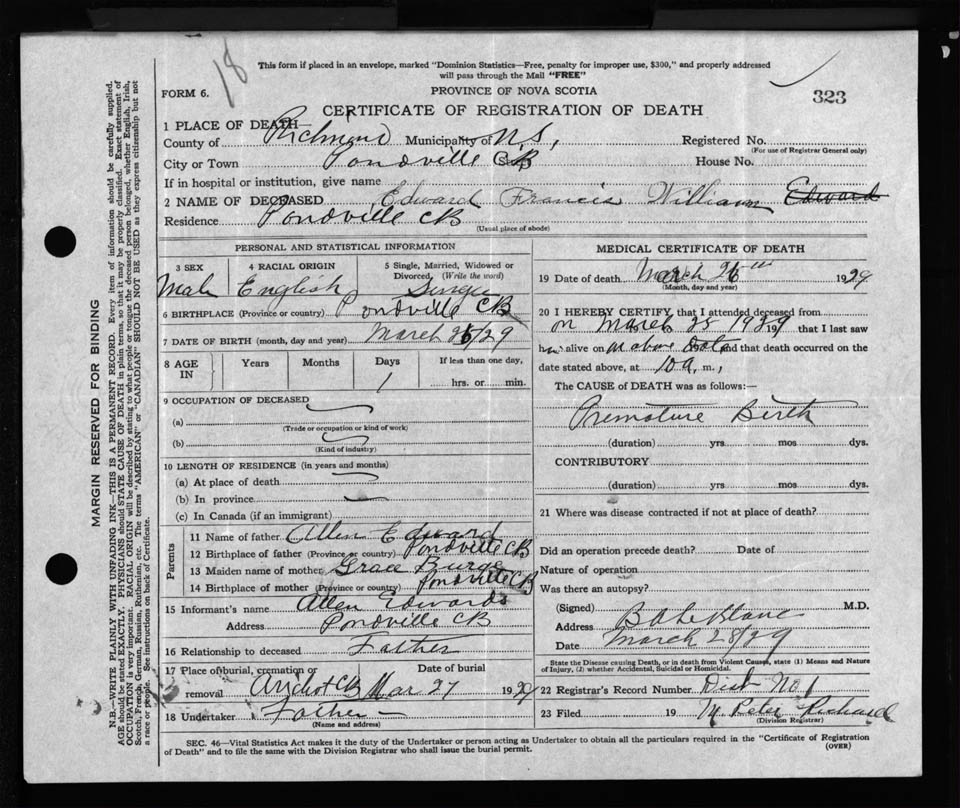 18
This form if placed in an envelope, marked "Dominion Statistics—Free, penalty for improper use, $300," and properly addressed
will pass through the Mail "FREE"
FORM 6.
PROVINCE OF NOVA SCOTIA
323
CERTIFICATE OF REGISTRATION OF DEATH
1 PLACE OF DEATH—
County of Richmond Municipality of N.S, Registered No.
(For use of Registrar General only)
City or Town Pondville CB House No.
If in hospital or institution, give name
2 NAME OF DECEASED Edward Francis William Edward
Residence Pondville CB
(Usual place of abode)
PERSONAL AND STATISTICAL INFORMATION
3 SEX 4 RACIAL ORIGIN 5 Single, Married, Widowed or
Divorced, (Write the word)
Male English Single
6 BIRTHPLACE (Province or country) Pondville CB
7 DATE OF BIRTH (month, day and year) March 25/29
8 AGE
IN Years Months Days If less than one day,
1 hrs. or min.
9 OCCUPATION OF DECEASED
(a)
(Trade or occupation or kind of work)
(b)
(Kind of industry)
10 LENGTH OF RESIDENCE (in years and months)
(a) At place of death
(b) In province
(c) In Canada (if an immigrant)
Parents
11 Name of father Allen Edward
12 Birthplace of father (Province or country) Pondville CB
13 Maiden name of mother Grace Burge
14 Birthplace of mother (Province or country) Pondville CB
15 Informant's name Allen Edwards
Address Pondville CB
16 Relationship to deceased Father
17 Place of burial, cremation or Date of burial
removal Arichat CB Mar 27 1929
18 Undertaker Father
(Name and address)
MEDICAL CERTIFICATE OF DEATH
19 Date of death March 26th 1929
(Month, day and year)
20 I HEREBY CERTIFY, that I attended deceased from
on March 25 1929 191 that I last saw
him alive on above Date and that death occurred on the
date stated above, at 10 a. m.,
The CAUSE of DEATH was as follows:—
Premature Birth
(duration) yrs mos dys.
CONTRIBUTORY
(duration) yrs mos dys.
21 Where was disease contracted if not at place of death?
Did an operation precede death? Date of
Nature of operation
Was there an autopsy?
(Signed) B A LeBlanc M.D.
Address
Date March 28/29
State the Disease causing Death, or in death from Violent Causes, state (1) Means and Nature
of Injury, (2) whether Accidental, Suicidal or Homicidal.
22 Registrar's Record Number Dist No. 1
23 Filed 19 M Peter
(Division Registrar)
SEC. 46—Vital Statistics Act makes it the duty of the Undertaker or person acting as Undertaker to obtain all the particulars required in the "Certificate of Registration
of Death" and to file the same with the Division Registrar who shall issue the burial permit. (OVER)
MARGIN RESERVED FOR BINDING
N.B.—WRITE PLAINLY WITH UNFADING INK—THIS IS A PERMANENT RECORD. Every item of information should be carefully supplied.
AGE should be stated EXACTLY. PHYSICIANS should STATE CAUSE OF DEATH in plain terms, so that it may be properly classified. Exact statement of
OCCUPATION is very important. RACIAL ORIGIN will be described by stating to what people or tongue the deceased person belonged, whether English, Irish,
Scotch, French, German, Russian, Ruthenian, etc. The terms "AMERICAN" or "CANADIAN" SHOULD NOT BE USED as they express citizenship but not
a race or people. See instructions on back of Certificate.